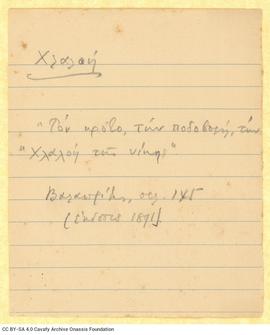 Χλαλοή
"Τον κρότο, την ποδοβολή, την
"Χλαλοή της νίκης"
Βαλαωρίτης, σελ. 145
(Έκδοσις 1891)
CC BY-SA 4.0 Cavafy Archive Onassis Foundation